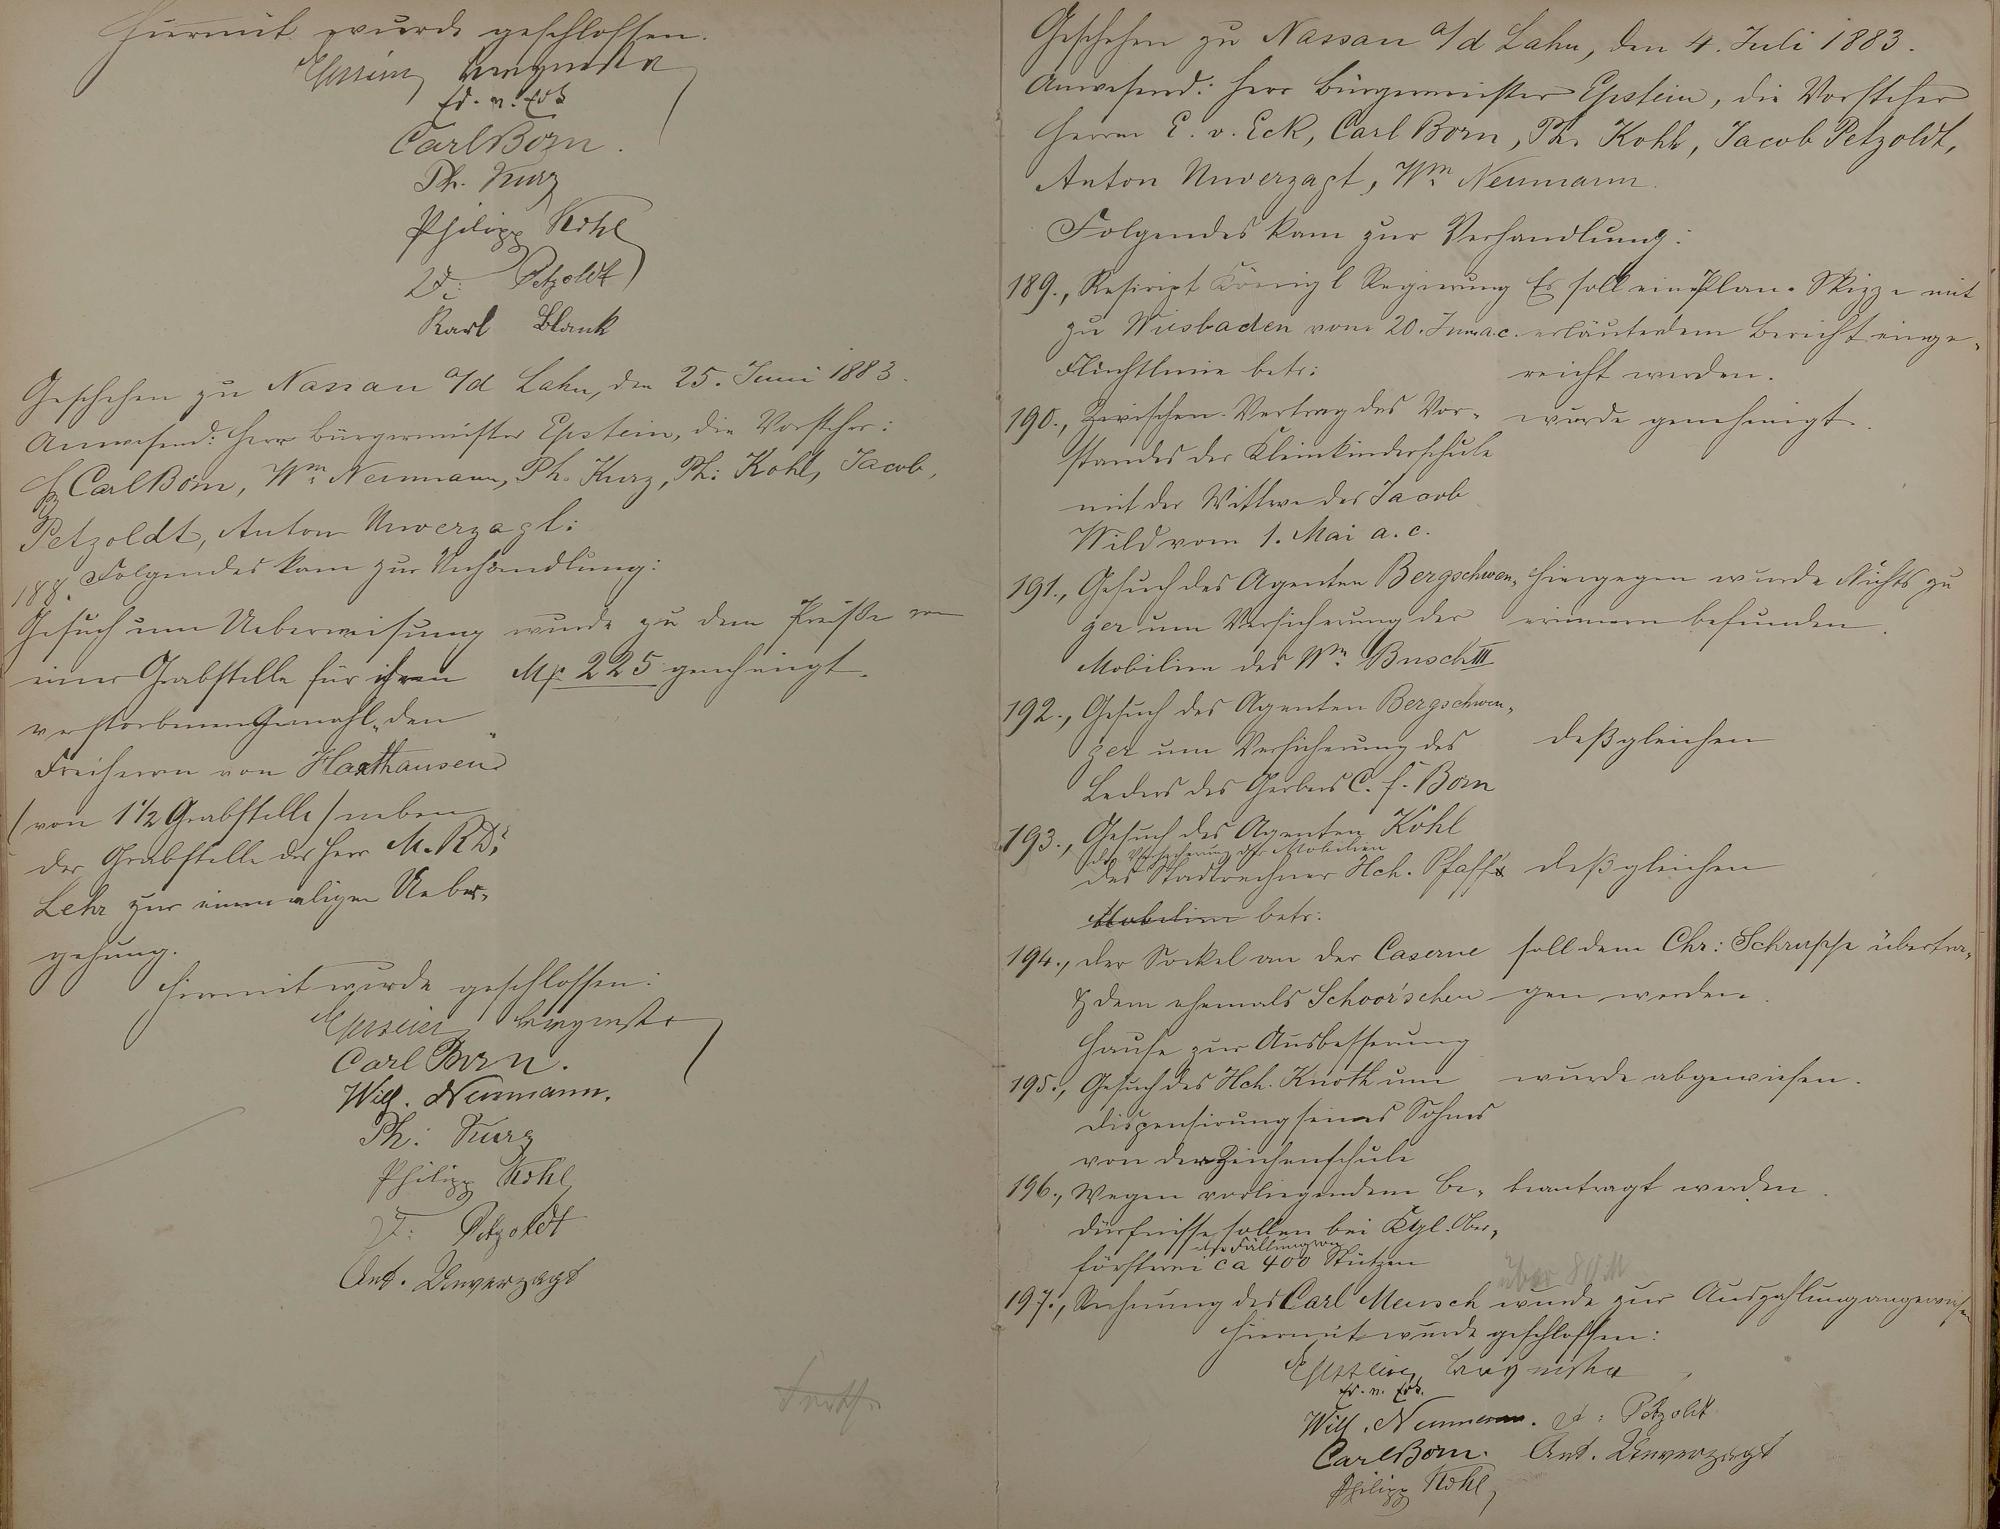 Hiermit wurde geschlossen.
Epstein, Bürgermeister
Ed. v. Eck
Carl Born.
Ph. Kurz
Philipp Kohl
Petzoldt
Karl Blank
Geschehen zu Nassau a/d Lahn, den 25. Juni 1883.
Anwesend: Herr Bürgermeister Epstein, die Vorsteher:
Carl Born, Wm. Neumann, Ph. Kurz, Ph: Kohl, Jacob
Petzoldt, Anton Unverzagt:
188. Folgendes kam zur Verhandlung:
Gesuch um Ueberweisung wurde zu dem Preiße von
einer Grabstelle für ihren Mk 225 genehmigt.
verstorbenen Gemahl, den
Freiherrn von Haxthausen
(von 1 1/2 Grabstelle) neben
der Grabstelle des Herr M. R. Dr.
Lehr zur einmaligen Ueber-
gehung.
Hiermit wurde geschlossen:
Epstein, Bürgermstr
Carl Born.
Wilh. Neumann.
Ph: Kurz
Philipp Kohl
J: Petzoldt
Ant. Unverzagt
Geschehen zu Nassau a/d Lahn, den 4. Juli 1883.
Anwesend: Herr Bürgermeister Epstein, die Vorsteher
Herrn E. v. Eck, Carl Born, Ph. Kohl, Jacob Petzoldt,
Anton Unverzagt, Wm. Neumann.
Folgendes kam zur Verhandlung:
189., Rescript Königl Regierung Es soll eine Plan-Skizze mit
zu Wiesbaden vom 20. Juni a.c. erläuterdem Bericht einge-
Fluchtlinie betr: reicht werden.
190., Zwischen-Vertrag des Vor- wurde genehmigt.
standes der Kleinkinderschule
mit der Wittwe des Jacob
Wild vom 1. Mai a. c.
191., Gesuch des Agenten Bergschwen- Hiergegen wurde Nichts zu
ger um Versicherung der erinnern befunden.
Mobilien des Wm. Busch III
192., Gesuch des Agenten Bergschwen-
ger um Versicherung des deßgleichen
Leders des Gerbers C. H. Born
193., Gesuch des Agenten Kohl
die Versicherung der Mobilien
des Stadtrechner Hch. Pfaff deßgleichen
Mobilien betr:
194., der Sockel an der Caserne soll dem Chr: Schruppe übertra-
& dem ehemals Schoor'schen gen werden.
Hause zur Ausbesserung
195., Gesuch des Hch. Knoth um wurde abgewiesen.
Dispensirung seines Sohnes
von der Zeichenschule
196., Wegen vorliegendem Be- beantragt werden.
dürfnisse sollen bei Kgl. Ober-
die Fällung von
försterei ca 400 Stützen
über 80 M
197., Rechnung des Carl Mensch wurde zur Auszahlung angewiesen
Hiermit wurde geschlossen:
Epstein, Bürgermeister
Ed. v. Eck.
Wilh. Neumann. J: Petzoldt
Carl Born. Ant. Unverzagt
Philipp Kohl